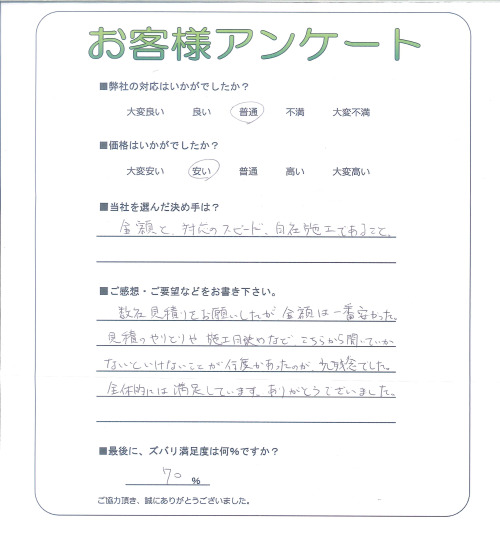 お客様アンケート
■弊社の対応はいかがでしたか？
大変良い 良い 普通 不満 大変不満
■価格はいかがでしたか？
大変安い 安い 普通 高い 大変高い
■当社を選んだ決め手は？
金額と、対応のスピード、自社施工であること。
■ご感想・ご要望などをお書き下さい。
数社見積りをお願いしたが金額は一番安かった。
見積のやりとりや施工日決めなど、こちらから聞いていか
ないといけないことが何度かあったのが、残念でした。
全体的には満足しています。ありがとうございました。
■最後に、ズバリ満足度は何%ですか？
70 %
ご協力頂き、誠にありがとうございました。